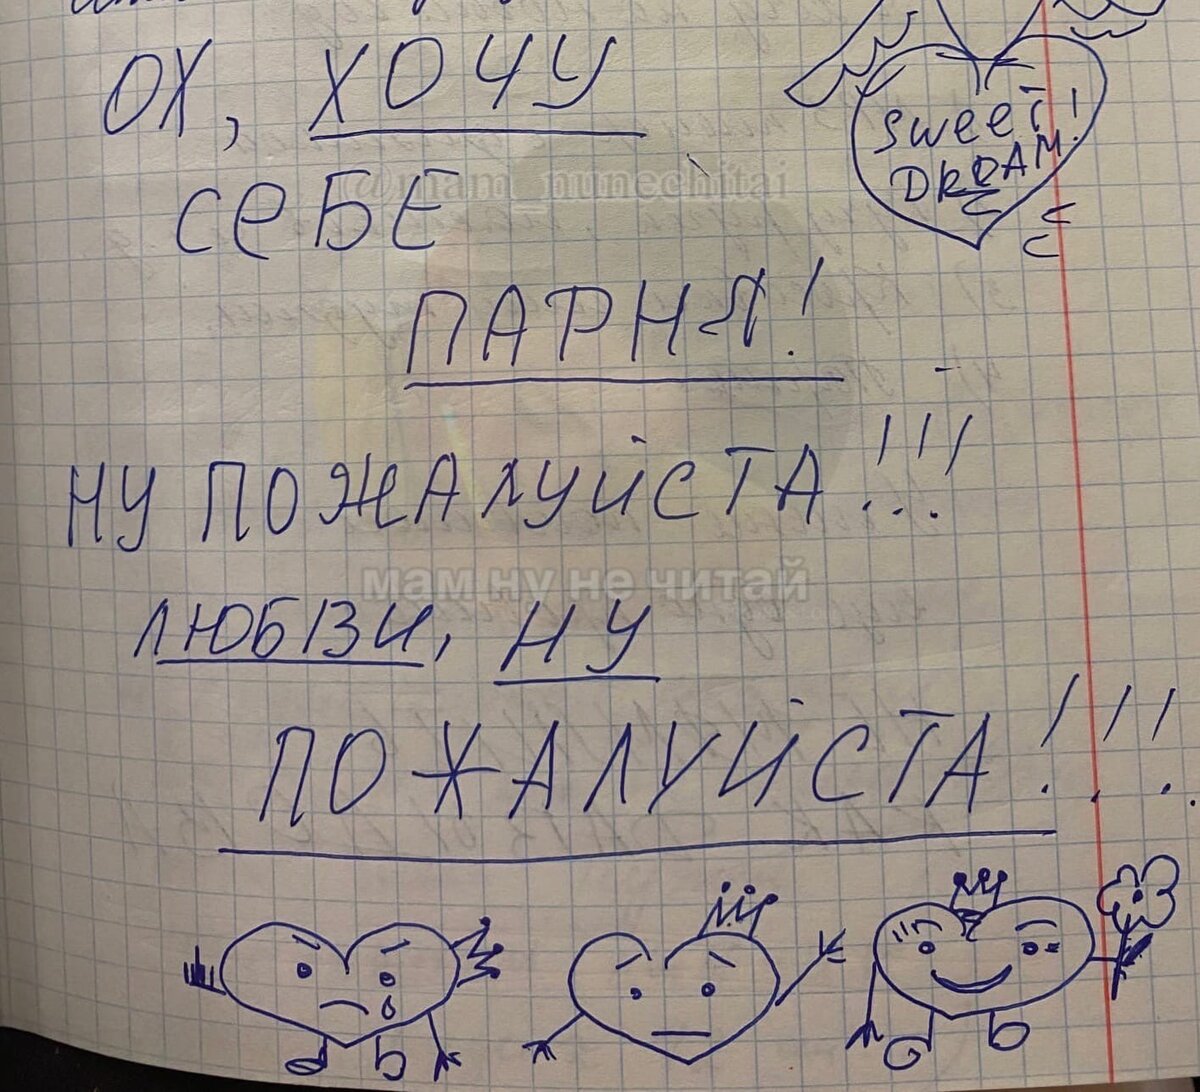 ОХ, ХОЧУ
SWEET!
DREAM!
СЕБЕ
@mam_nunechitai
ПАРНЯ!
НУ ПОЖАЛУЙСТА!!!
мам ну не читай
ЛЮБВИ, НУ
ПОЖАЛУЙСТА!!!